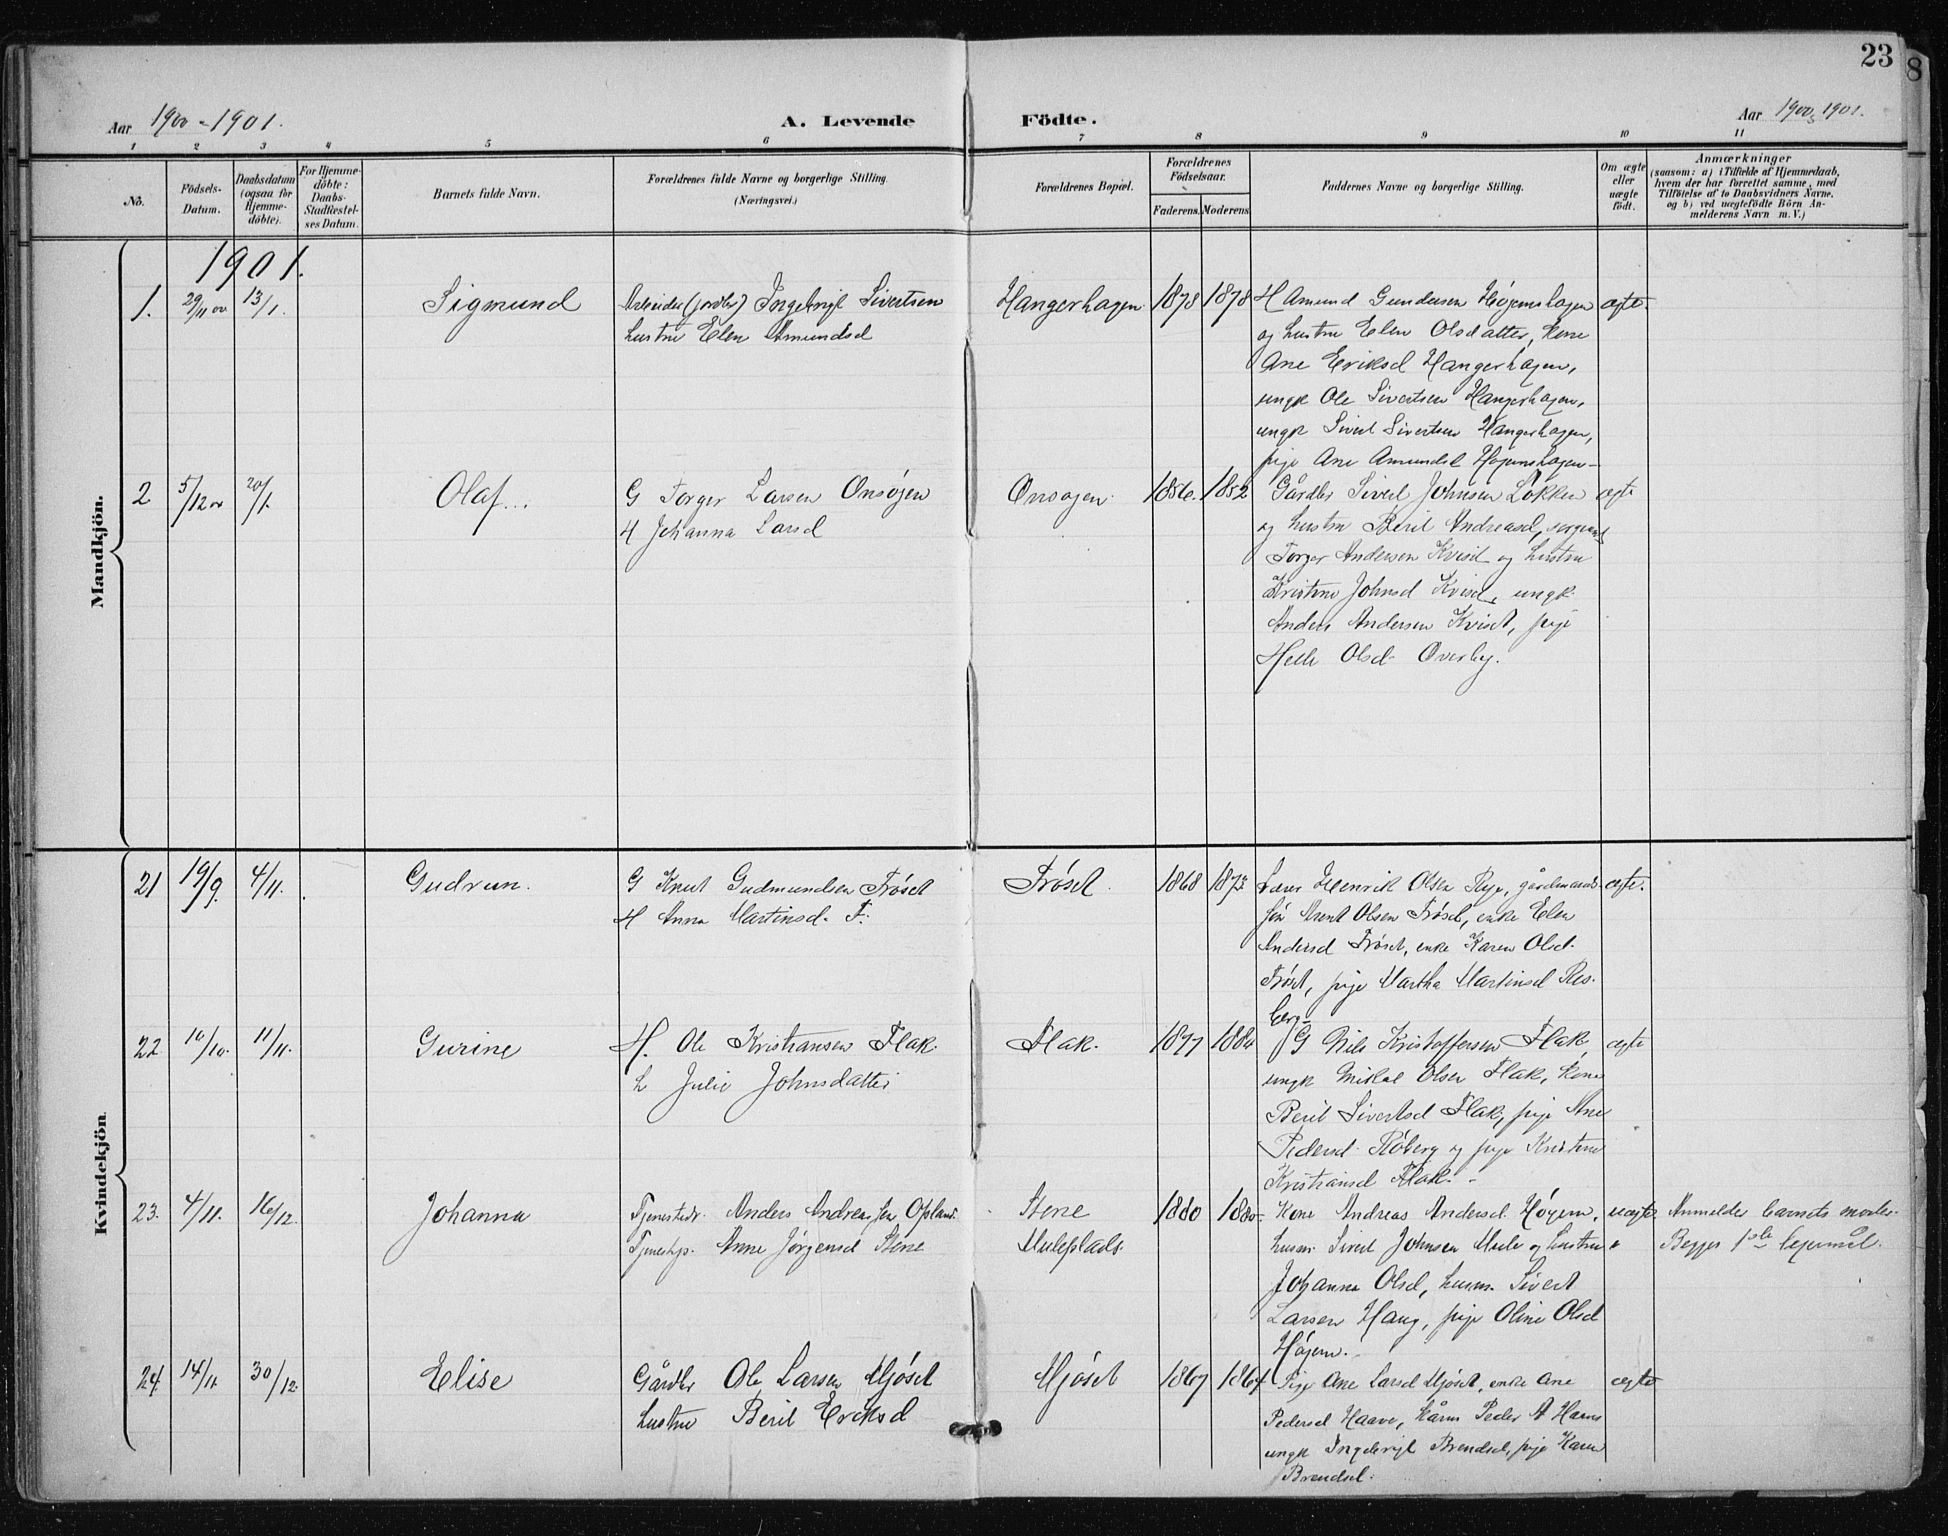 23
8
Aar 1900 - 1901.
A. Levende Födte.
Aar 1900, 1901.
1 2 3 4 5 6 7 8 9 10 11
No.
Födsels-Datum.
Daabsdatum (ogsaa for Hjemme-döbte).
For Hjemme-döbte: Daabs-Stadfæstel-ses Datum.
Barnets fulde Navn.
Forældrenes fulde Navne og borgerlige Stilling.
(Næringsvei.)
Forældrenes Bopæl.
Forældrenes Födselsaar.
Faderens. Moderens.
Faddernes Navne og borgerlige Stilling.
Om ægte eller uægte födt.
Anmærkninger
(saasom: a) i Tilfælde af Hjemmedaab,
hvem der har forrettet samme, med
Tilföielse af to Daabsvidners Navne.
og b) ved uægtefödte Börn An-
melderens Navn m. V.)
Mandkjön.
1901.
1. 29/11 00 13/1. Sigmund Arbeider (jordbr) Ingebrigt Sivertsen Hangerhagen 1878 1878 H Amund Gundersen Høyemshagen ægte.
hustru Elen Amundsd og hustru Elen Olsdatter, kone
Ane Eriksd Hangerhagen,
ungk Ole Sivertsen Hangerhagen,
ungk Sivert Sivertsen Hangerhagen,
pige Ane Amundsd Høyemshagen
2 5/12 00 20/1. Olaf... G Torger Larsen Onsøjen Onsøjen. 1856. 1852 Gårdbr Sivert Johnsen Løkken ægte
H Johanna Larsd og hustru Beril Andreasd,
Torger Andersen Kvisd og hustru
Kristine Johnsd Kvisd, ungk
Anders Andersen Kviset, pige
Olsd Overby.
Kvindekjön.
21 19/9. 4/11. Gudrun. G Knut Gudmundsen Trøset Trøset. 1868 1873 Henrik Olsen Rye, gårdmands- ægte.
H Anna Martinsd. T. søn Arent Olsen Trøset, enke Elen
Andersd Trøset, enke Karen Olsd.
Trøset, pige Martha Martinsd Res-
berg
22 10/10. 11/11. Gurine H. Ole Kristiansen Flak Flak. 1877 G Nils Kristoffersen Flak, ægte
h Julie Johnsdatter ungk Mikal Olsen Flak, kone
Beril Sivertsd Flak, pige Ane
Pedersd. Røberg og pige Kristine
Kristiansd Flak.
23. 4/11. 16/12. Johanna Tjenestedr. Anders Andreassen Opland. Stene 1880 1880 Kone Andreas Andersd. Høyem, uægte Anmelder barnets moder.
Tjenestep. Anne Jørgensd Stene Muleplads. husm. Sivert Johnsen Mule og hustru Begges 1ste lejermål.
Johanna Olsd, husm. Sivert
Larsen Haug, pige Oline Olsd
Høyem.
24. 14/11 30/12. Elise Gårdbr Ole Larsen Mjøset Mjøset 1867 1864 Pige Ane Larsd Mjøset, enke Ane ægte
hustru Beril Eriksd Pedersd Haave, Peder A
ungk Ingebrigt Brendsel, pige Karen
Brendsel.